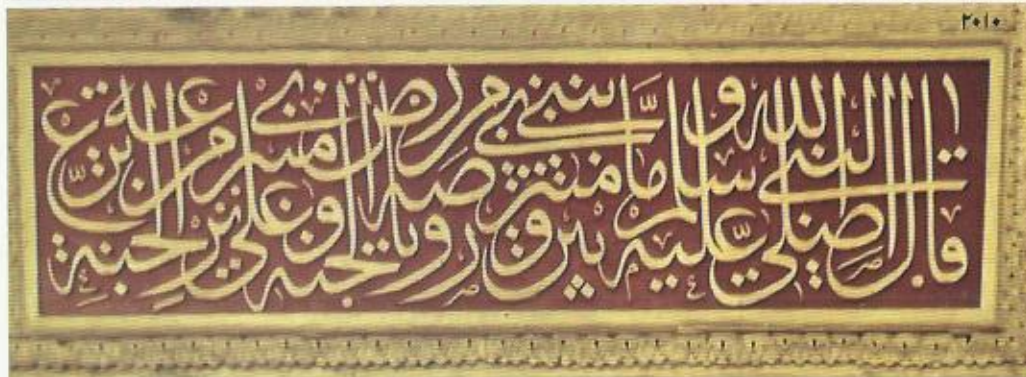 ٢٠١٠
قال النبي صلى الله عليه وسلم ما بين منبري وبيتي روضة من رياض الجنة وان منبري على ترعة من ترع الجنة